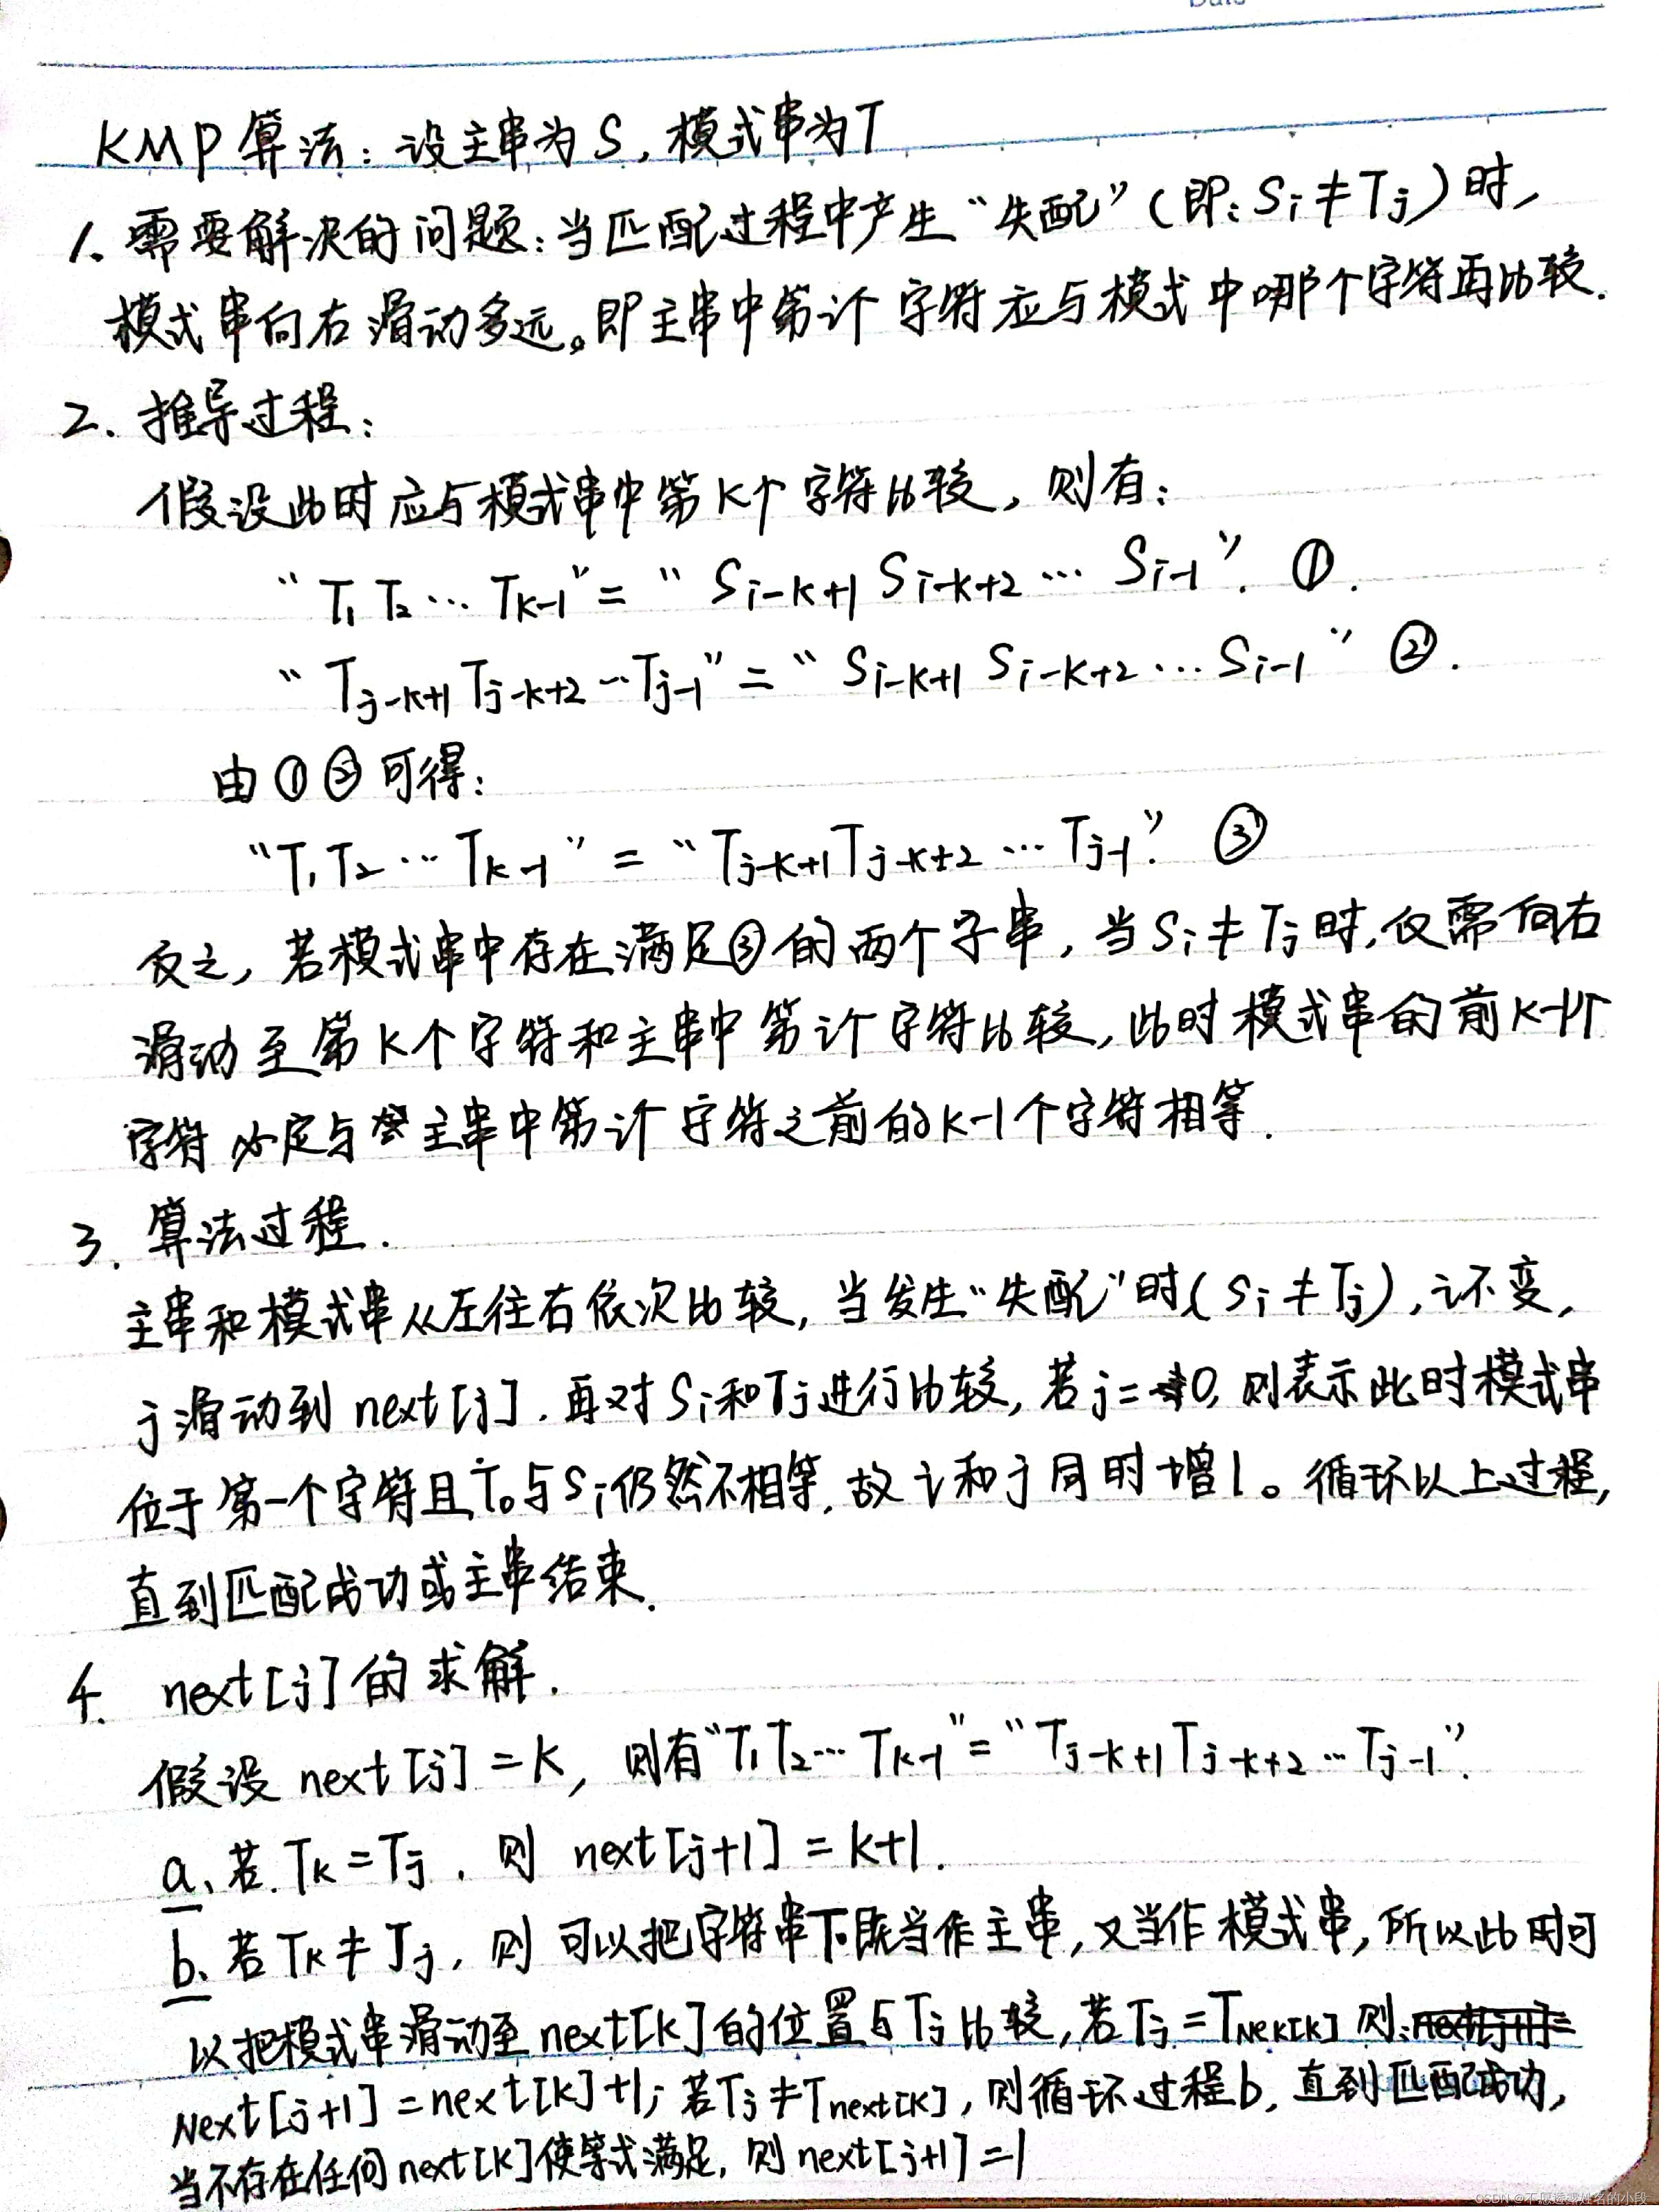 KMP算法：设主串为S，模式串为T
1. 需要解决的问题：当匹配过程中产生“失配”（即：Si≠Tj）时，
模式串向右滑动多远。即主串中第i个字符应与模式中哪个字符再比较.
2. 推导过程：
假设此时应与模式串中第K个字符比较，则有：
“T1 T2 … Tk-1”=“Si-k+1 Si-k+2 … Si-1”. ①.
“Tj-k+1 Tj-k+2 … Tj-1”=“Si-k+1 Si-k+2 … Si-1” ②.
由①②可得：
“T1 T2 … Tk-1”=“Tj-k+1 Tj-k+2 … Tj-1”. ③
反之，若模式串中存在满足③的两个子串，当Si≠Tj时，仅需向右
滑动至第K个字符和主串中第i个字符比较，此时模式串的前K-1个
字符必定与主串中第i个字符之前的K-1个字符相等.
3. 算法过程.
主串和模式串从左往右依次比较，当发生“失配”时（Si≠Tj），i不变，
j滑动到next[j]. 再对Si和Tj进行比较，若j=0，则表示此时模式串
位于第一个字符且T0与Si仍然不相等，故i和j同时增1。循环以上过程，
直到匹配成功或主串结束.
4. next[j]的求解.
假设next[j]=K，则有“T1 T2 … Tk-1”=“Tj-k+1 Tj-k+2 … Tj-1”.
a、若Tk=Tj，则 next[j+1]=k+1.
b、若Tk≠Tj，则可以把字符串T既当作主串，又当作模式串，所以此时可
以把模式串滑动至next[k]的位置与Tj比较，若Tj=TNex[k] 则：
Next[j+1]=next[k]+1；若Tj≠Tnext[k]，则循环过程b，直到匹配成功，
当不存在任何next[k]使等式满足，则next[j+1]=1
CSDN @不愿透漏姓名的小段